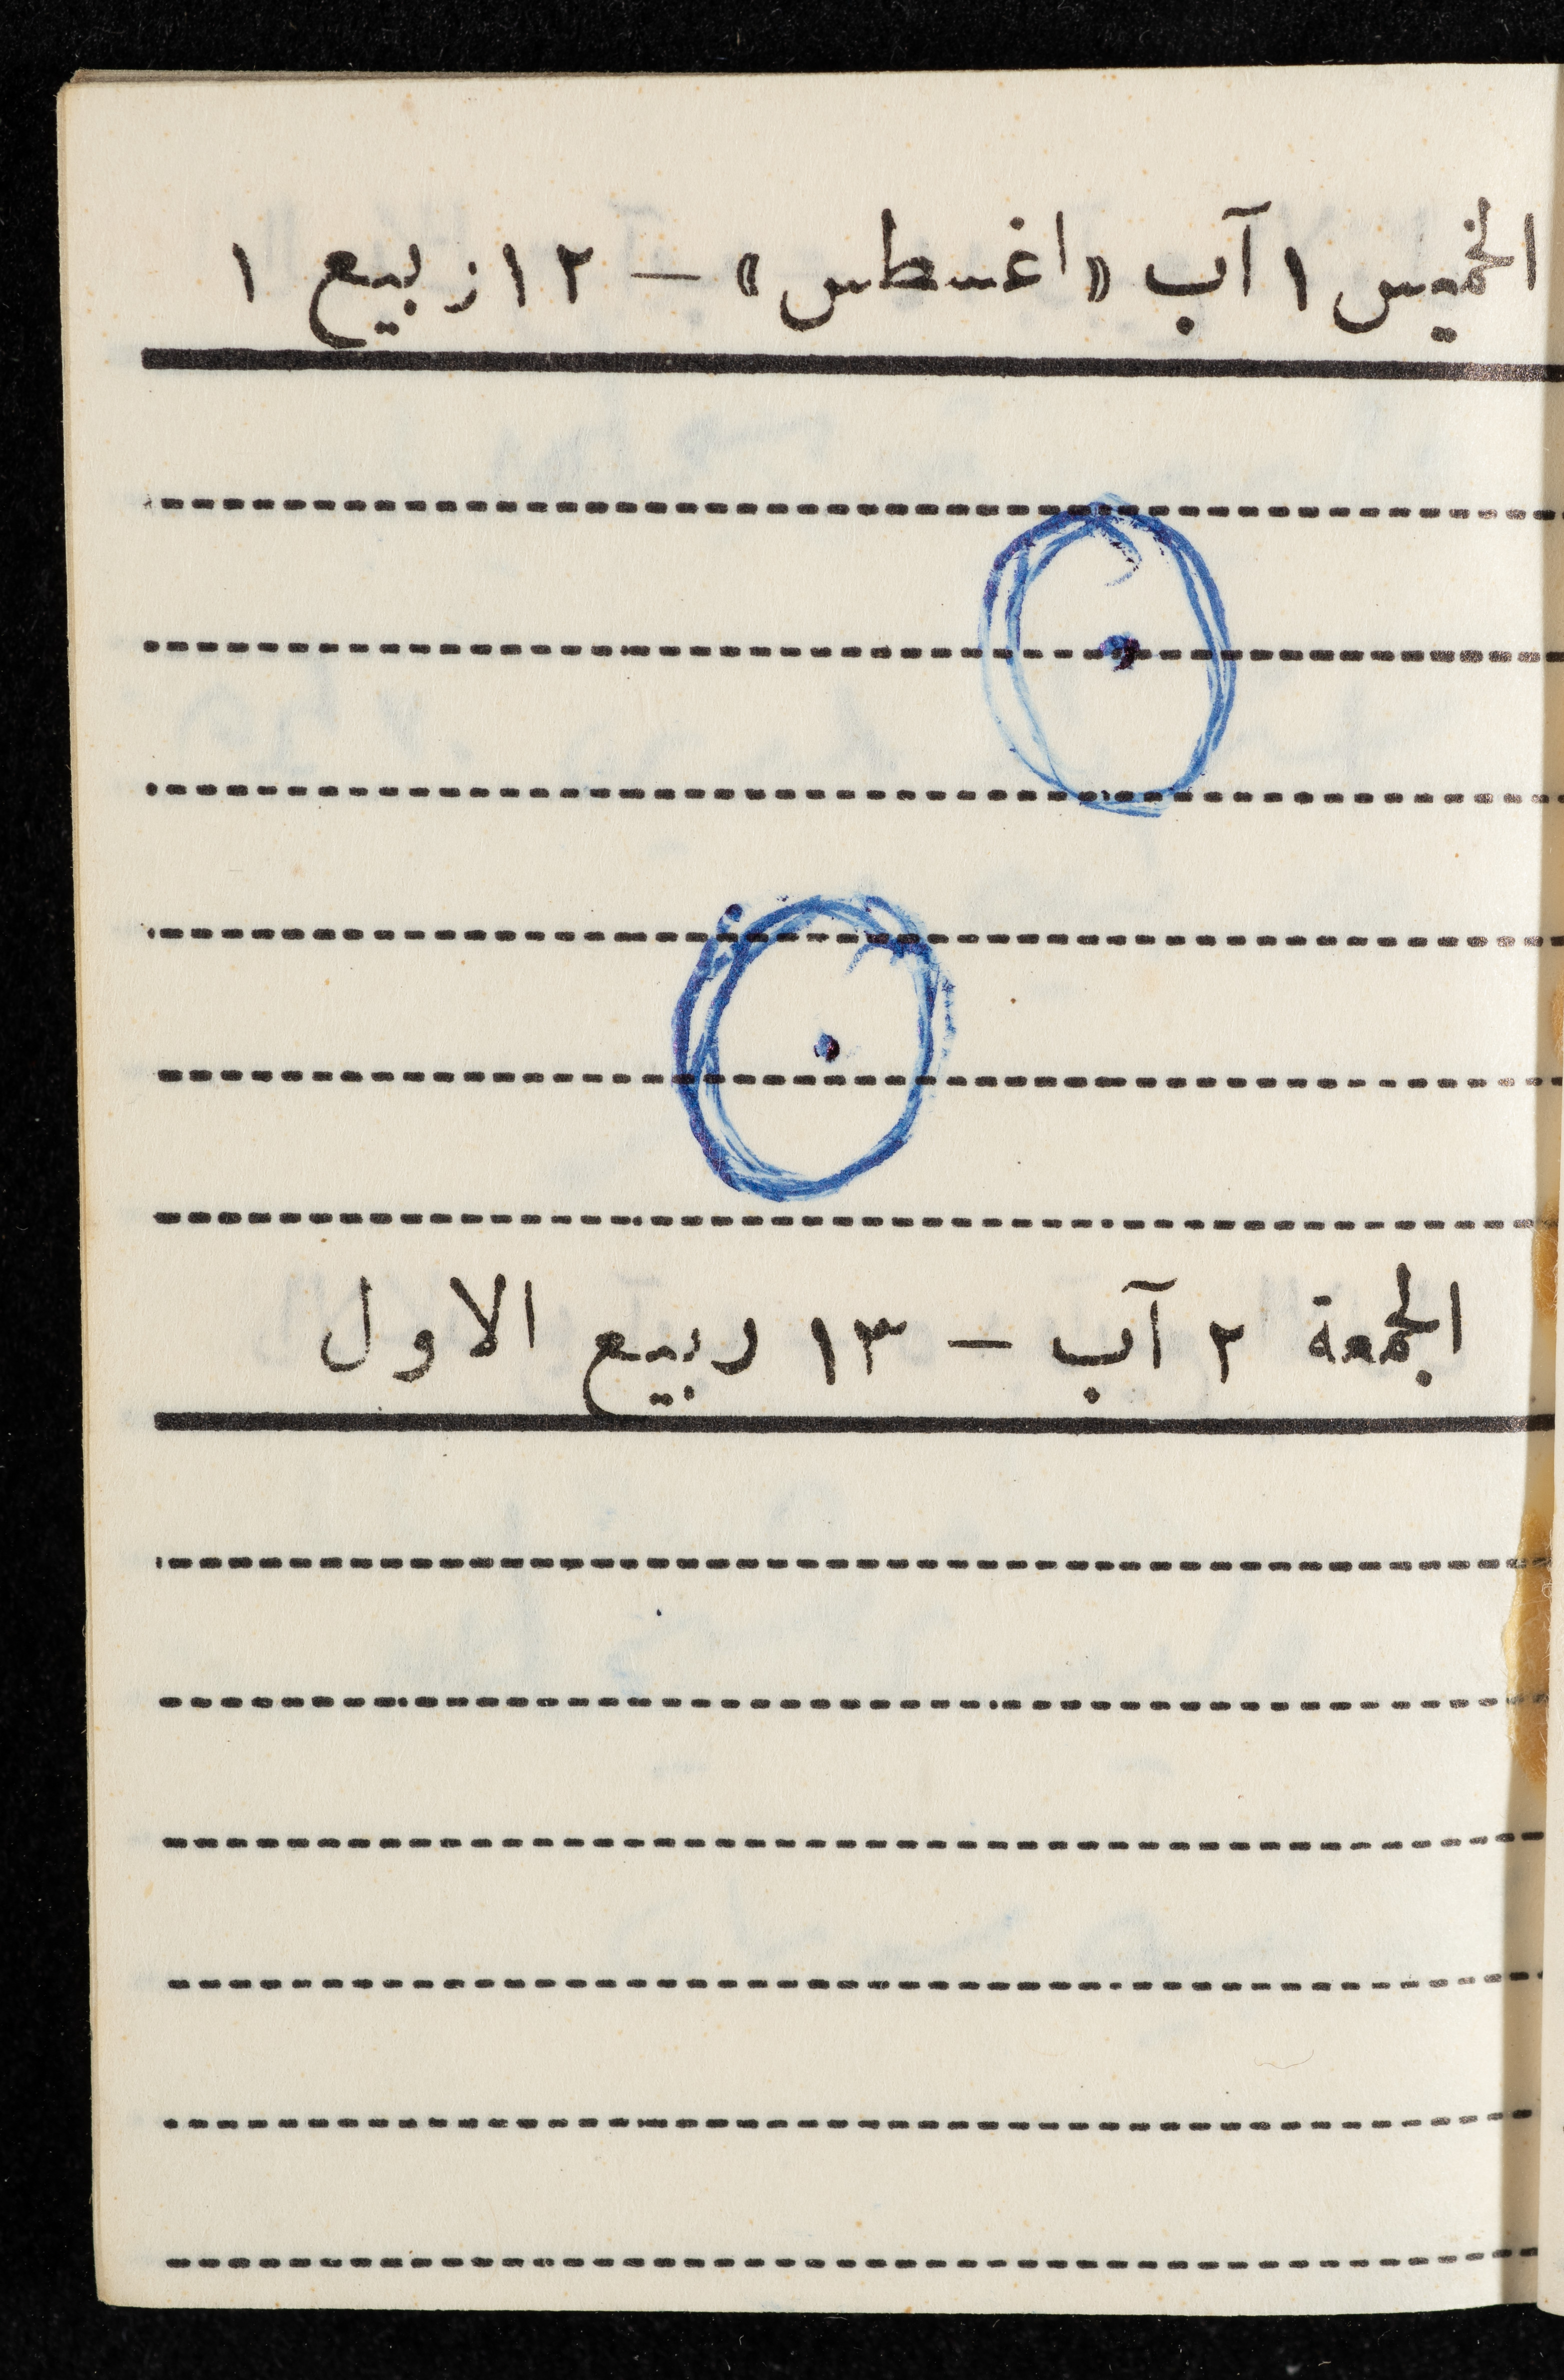 الخميس ١ آب «اغسطس» – ١٢ ربيع ١
الجمعة ٢ آب – ١٣ ربيع الاول